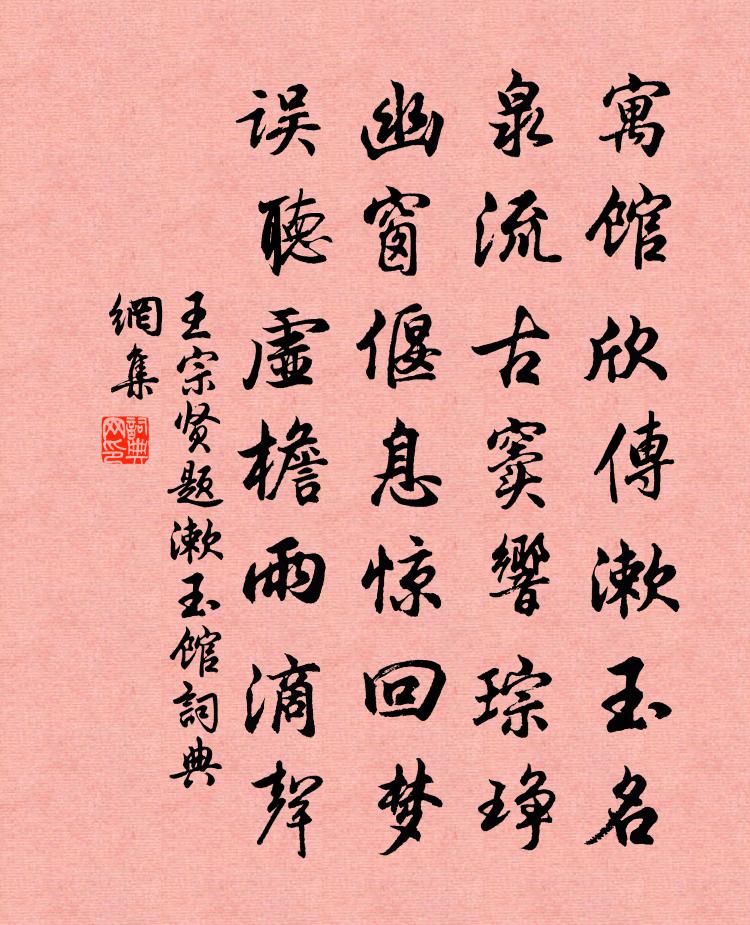 寓馆欣傳漱玉名
泉流古竇響琮琤
幽窗偃息惊回梦
误聽虚檐雨滴聲
王宗贤题漱玉馆詞典
網集
詞典
网印